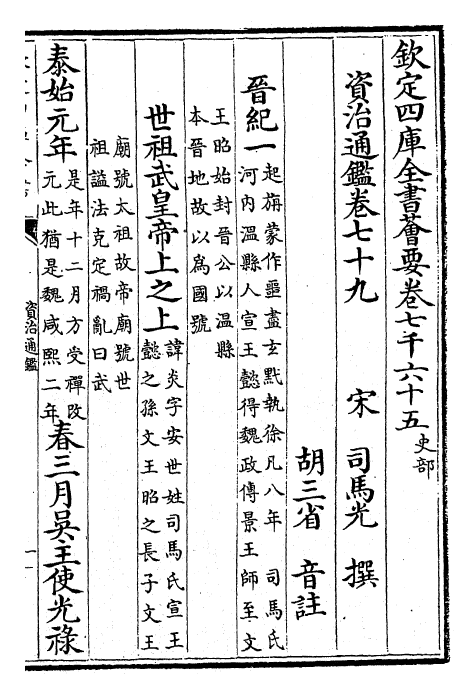 欽定四庫全書薈要卷七千六十五 史部
資治通鑑卷七十九 宋 司馬光 撰
胡三省 音註
晉紀一 起旃蒙作噩盡玄黓執徐凡八年 司馬氏
河内溫縣人宣王懿得魏政傳景王師至文
王昭始封晉公以溫縣
本晉地故以爲國號
世祖武皇帝上之上 諱炎字安世姓司馬氏宣王
懿之孫文王昭之長子文王
廟號太祖故帝廟號世
祖諡法克定禍亂曰武
泰始元年 是年十二月方受禪改
元此猶是魏咸熙二年 春三月吳主使光祿
資治通鑑
一